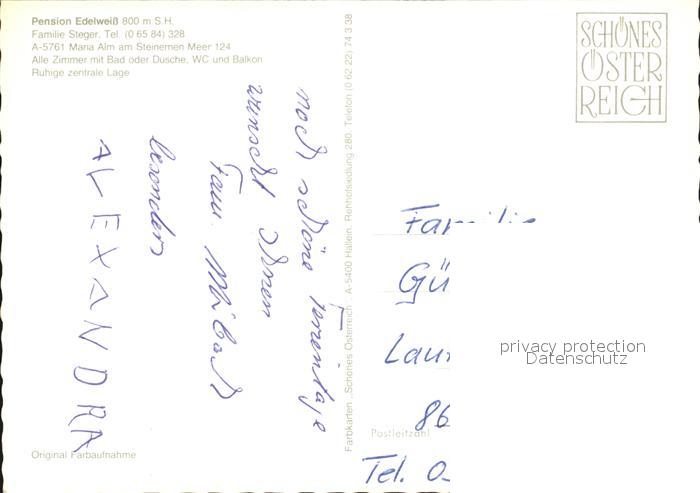 Pension Edelweiß 800 m S.H.
Familie Steger, Tel. (0 65 84) 328
A-5761 Maria Alm am Steinernen Meer 124
Alle Zimmer mit Bad oder Dusche, WC und Balkon
Ruhige zentrale Lage
SCHÖNES
ÖSTER
REICH
noch schöne Ferientage
wünscht Ihnen
Fam.
besonders
ALEXANDRA
Farbkarten „Schönes Österreich", A-5400 Hallein, Rehhofsiedlung 280, Telefon (0 62 22) 74 3 38
Familie
Gü
Lau
86
Postleitzahl
Tel. 0
privacy protection
Datenschutz
Original Farbaufnahme